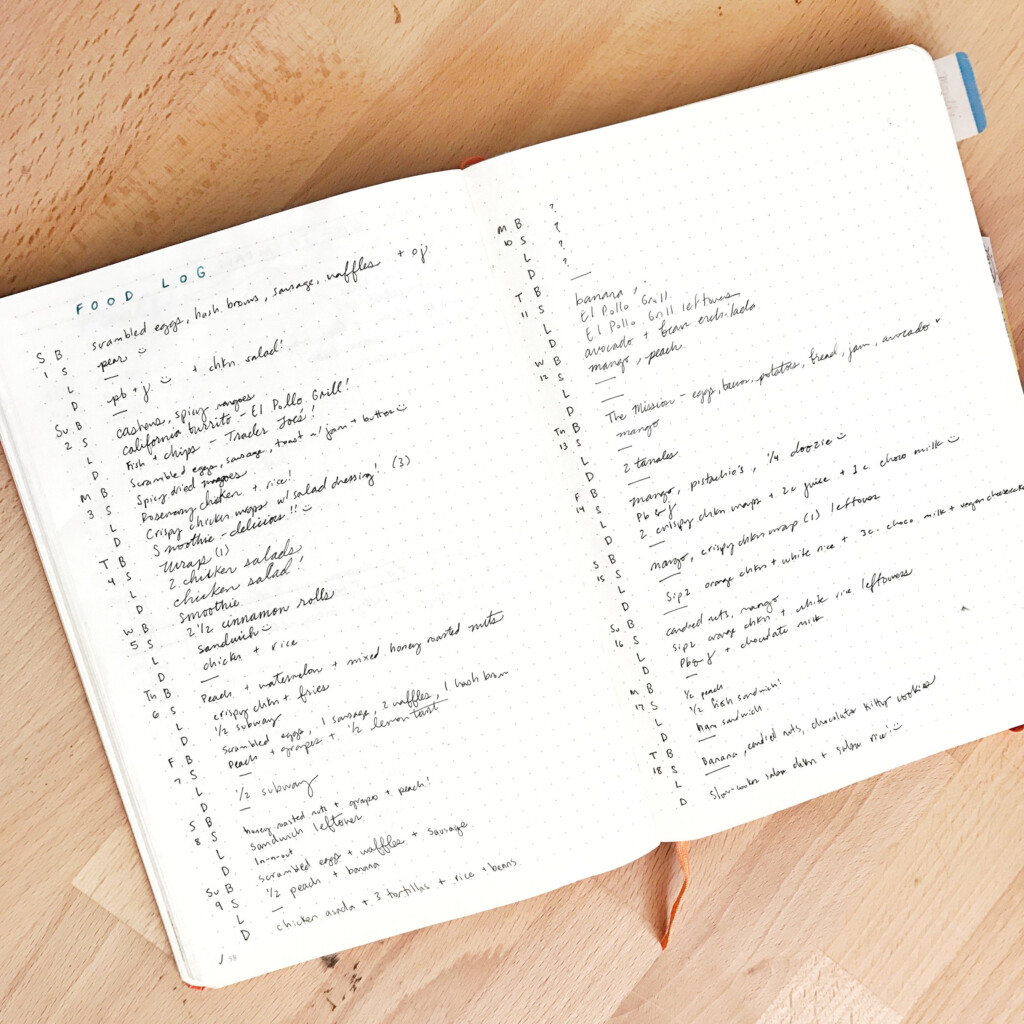 FOOD LOG
S B scrambled eggs, hash browns, sausage, waffles + oj
1 S pear ☺
L —
D pb + j ☺ + chkn. salad!
Su B —
2 S cashews, spicy mangoes
L california burrito - El Pollo Grill!
D Fish + chips - Trader Joe's!
M B Scrambled eggs, sausage, toast w/ jam + butter ☺
3 S Spicy dried mangoes
L Rosemary chicken + rice!
D Crispy chicken wraps w/ salad dressing! (3)
T B Smoothie - delicious!!
4 S Wrap (1)
L 2 chicken salads
D chicken salad!
W B smoothie
5 S 2 1/2 cinnamon rolls
L sandwich ☺
D chicken + rice
Th B —
6 S Peach + watermelon + mixed honey roasted nuts
L crispy chkn + fries
D 1/2 subway
F B scrambled eggs, 1 sausage, 2 waffles, 1 hash brown
7 S Peach + grapes + 1/2 lemon tart
L —
D 1/2 subway
S B —
8 S honey roasted nuts + grapes + peach!
L Sandwich leftover
D In-n-out
Su B scrambled eggs + waffles + sausage
9 S 1/2 peach + banana
L —
D chicken asada + 3 tortillas + rice + beans
58
M B ?
10 S ?
L ?
D ?
T B —
11 S banana,
L El Pollo Grill
D El Pollo Grill leftovers
W B avocado + bean enchilada
12 S mango, peach
L —
D —
Th B The Mission - eggs, bacon, potatoes, bread, jam, avocado
13 S mango
L —
D 2 tamales
F B —
14 S mango, pistachio's, 1/4 doozie ☺
L Pb & J
D 2 crispy chkn wraps + 2c juice + 1c. choco milk ☺
S B —
15 S mango, crispy chkn wrap (1) leftovers
L —
D Sip2 orange chkn + white rice + 3c. choco. milk + vegan cheesecake
Su B —
16 S candied nuts, mango
L Sip2 orange chkn + white rice leftovers
D Pb & J + chocolate milk
M B —
17 S 1/2 peach
L 1/2 fish sandwich!
D ham sandwich
T B —
18 S Banana, candied nuts, chocolate kitty cookies
L —
D Slow-cooker salsa chkn + salsa rice! ☺